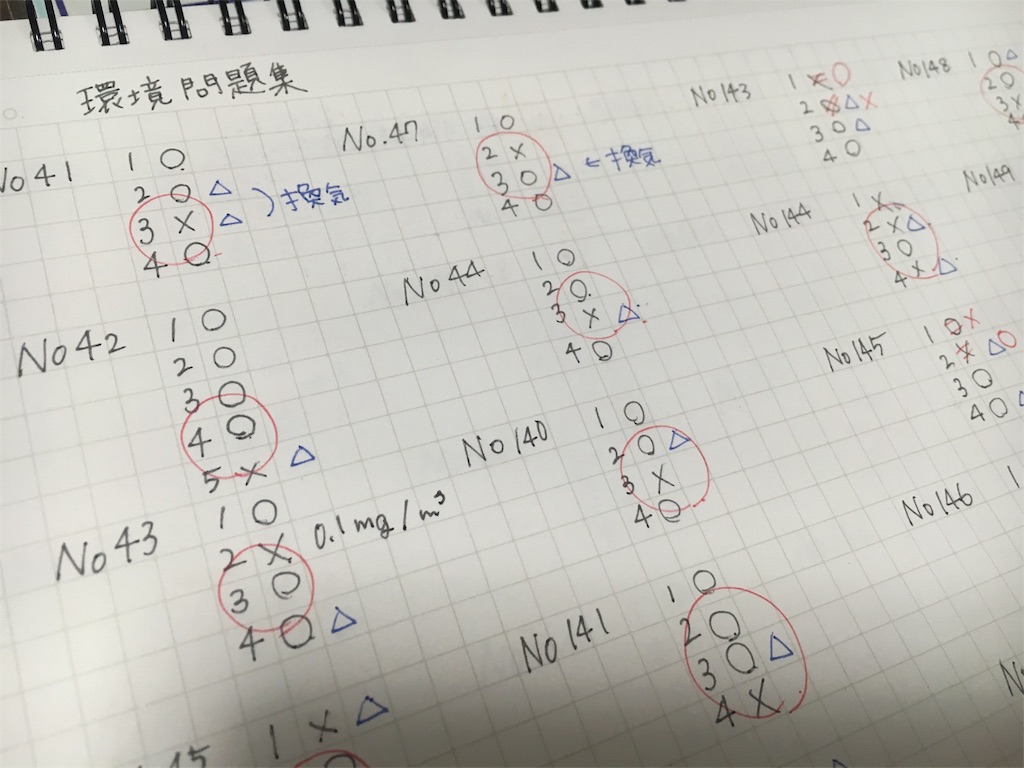 環境問題集
No 41
1 ○
2 ○ △
3 × △
) 換気
4 ○
No 42
1 ○
2 ○
3 ○
4 ○
5 × △
No 43
1 ○
2 × 0.1mg/m³
3 ○
4 ○ △
1 × △
No.47
1 ○
2 ×
3 ○ △ ←換気
4 ○
No 44
1 ○
2 ○
3 × △
4 ○
No 140
1 ○
2 ○ △
3 ×
4 ○
No 141
1 ○
2 ○
3 ○ △
4 ×
No 143
1 × ○
2 △ ×
3 ○ △
4 ○
No 144
1 ×
2 × △
3 ○
4 × △
No 145
1 ○ ×
2 × △ ○
3 ○
4 ○ △
No 146
1
No 148
1 ○ △
2 ○
3 ×
4
No 149